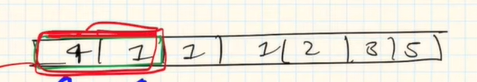 4 | 1 | 1 | 1 | 2 | 3 | 5 |